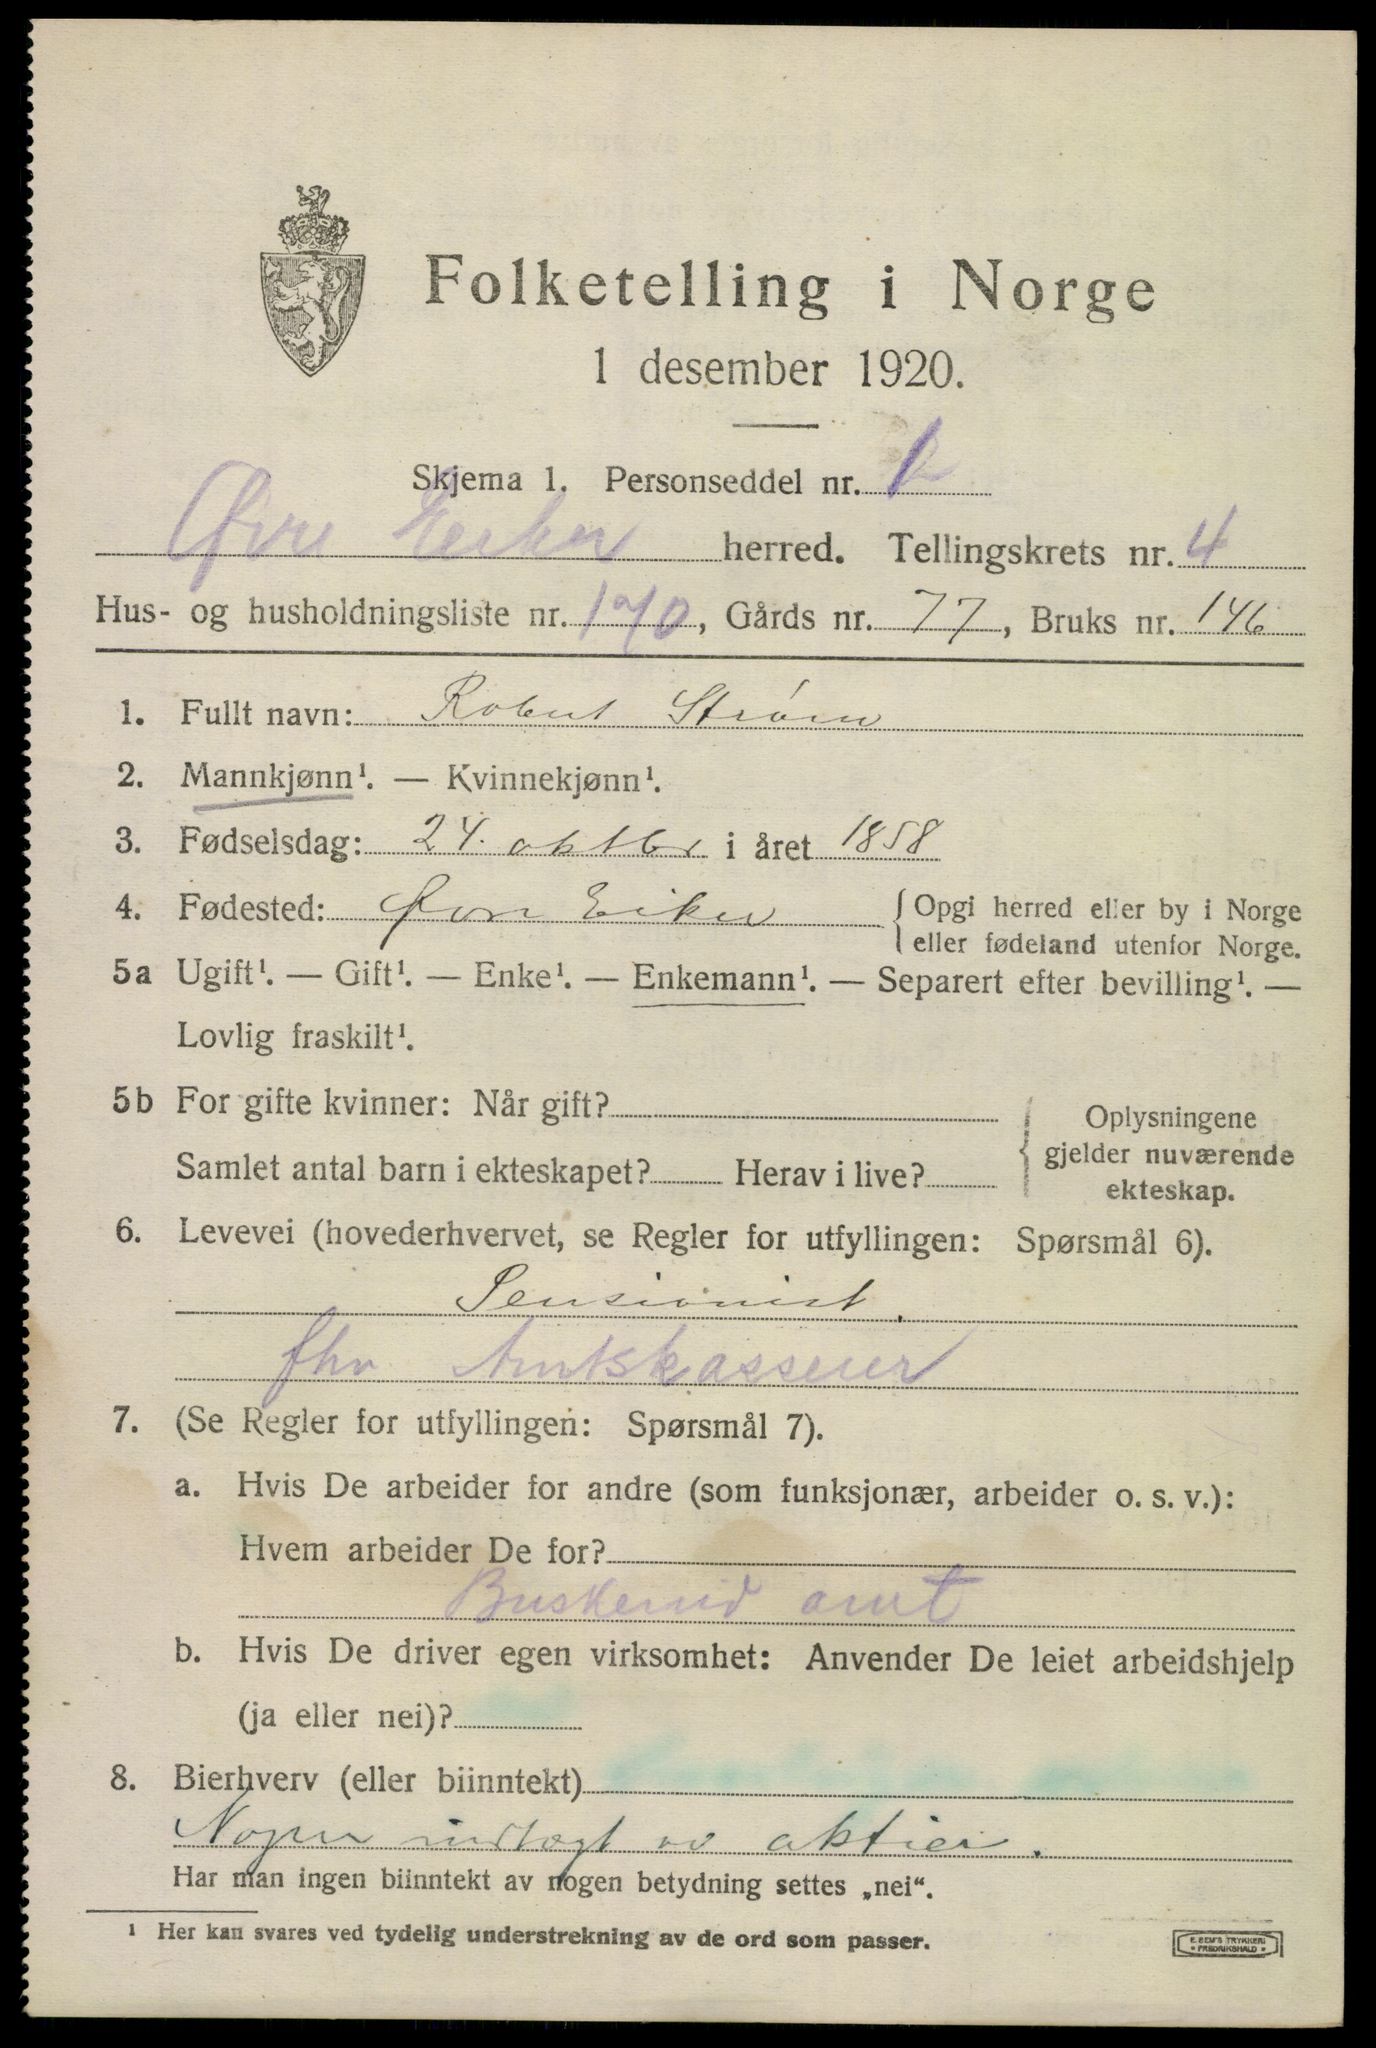 Folketelling i Norge
1 desember 1920.
Skjema 1. Personseddel nr.
Øvre Eeker herred. Tellingskrets nr. 4
Hus- og husholdningsliste nr. 170, Gårds nr. 77, Bruks nr. 146
1. Fullt navn: Robert Strøm
2. Mannkjønn¹. — Kvinnekjønn¹.
3. Fødselsdag: 24. oktbr i året 1858
4. Fødested: Øvre Eiker { Opgi herred eller by i Norge
eller fødeland utenfor Norge.
5a Ugift¹. — Gift¹. — Enke¹. — Enkemann¹. — Separert efter bevilling¹. —
Lovlig fraskilt¹.
5b For gifte kvinner: Når gift? { Oplysningene
gjelder nuværende
ekteskap.
Samlet antal barn i ekteskapet? Herav i live?
6. Levevei (hovederhvervet, se Regler for utfyllingen: Spørsmål 6).
Pensionist.
fhv Amtskasserer
7. (Se Regler for utfyllingen: Spørsmål 7).
a. Hvis De arbeider for andre (som funksjonær, arbeider o. s. v.):
Hvem arbeider De for?
Buskerud amt
b. Hvis De driver egen virksomhet: Anvender De leiet arbeidshjelp
(ja eller nei)?
8. Bierhverv (eller biinntekt)
Nogen indtægt av aktier.
Har man ingen biinntekt av nogen betydning settes „nei“.
¹ Her kan svares ved tydelig understrekning av de ord som passer.
E. SEM'S TRYKKERI
• FREDRIKSHALD •